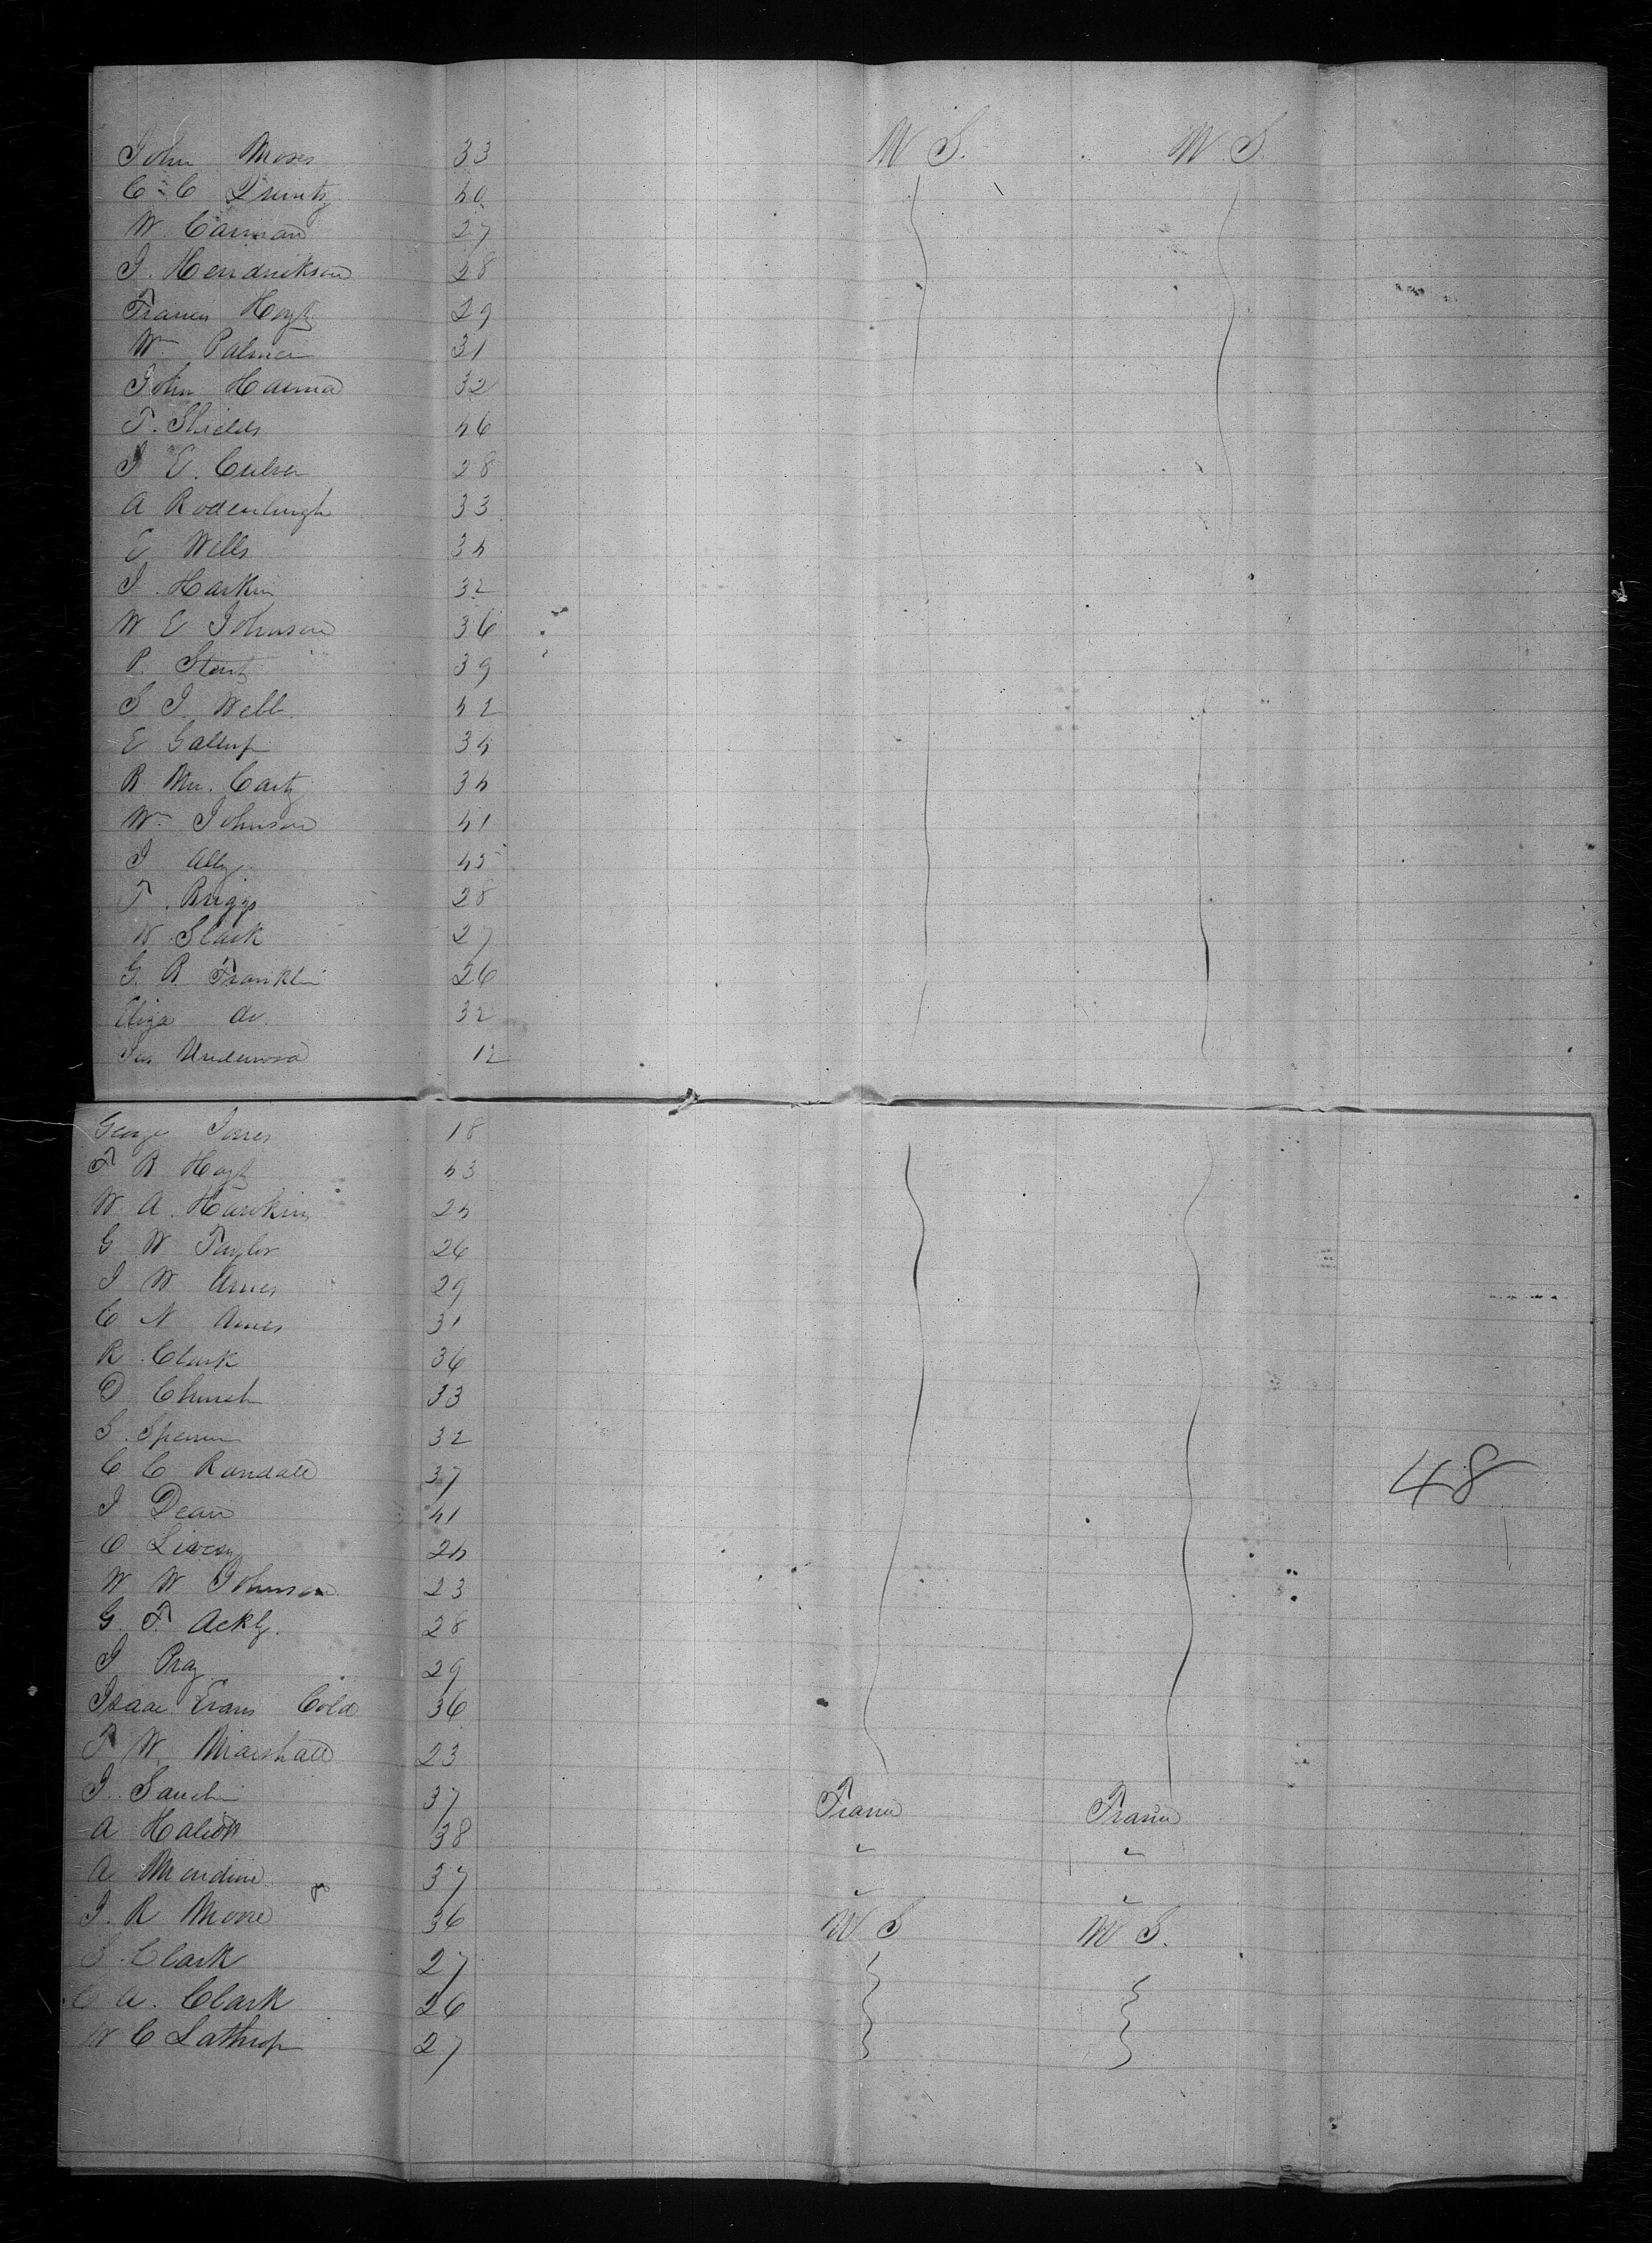 John Moses 33 U S. U. S.
C. C 40
W. Carman 27
J. Hendrickson 28
Frances Hoyt 29
Wm Palmer 31
John 32
T. Shields 46
J E. Culver 28
A Rodenburgh 33
E Wells 34
J. Harkin 32
W E Johnson 36
P. 39
S J Webb 42
E Gallup 34
R Mc. Carty 34
Wm Johnson 41
J Ally 45
T. Briggs 28
W. Slack 27
G. R Franklin 26
Eliza do. 32
Jas Underwood 12
George Jones 18
F R Hoyt 43
W. A. Hawkins 24
G W Taylor 26
J W Ames 29
C N Ames 31
R. Clark 36
D Church 33
S. 32
C C Randall 37
48
J Dean 41
O 24
W W Johnson 23
G. F. Ackly. 28
J Pray 29
Isaac Evans Cold 36
T W. Marshall 23
J. 37 France France
A 38 " "
A 37 " "
J. R Moore 36 U S U S.
S. Clark 27
C A. Clark 26
W C Lathrop 27